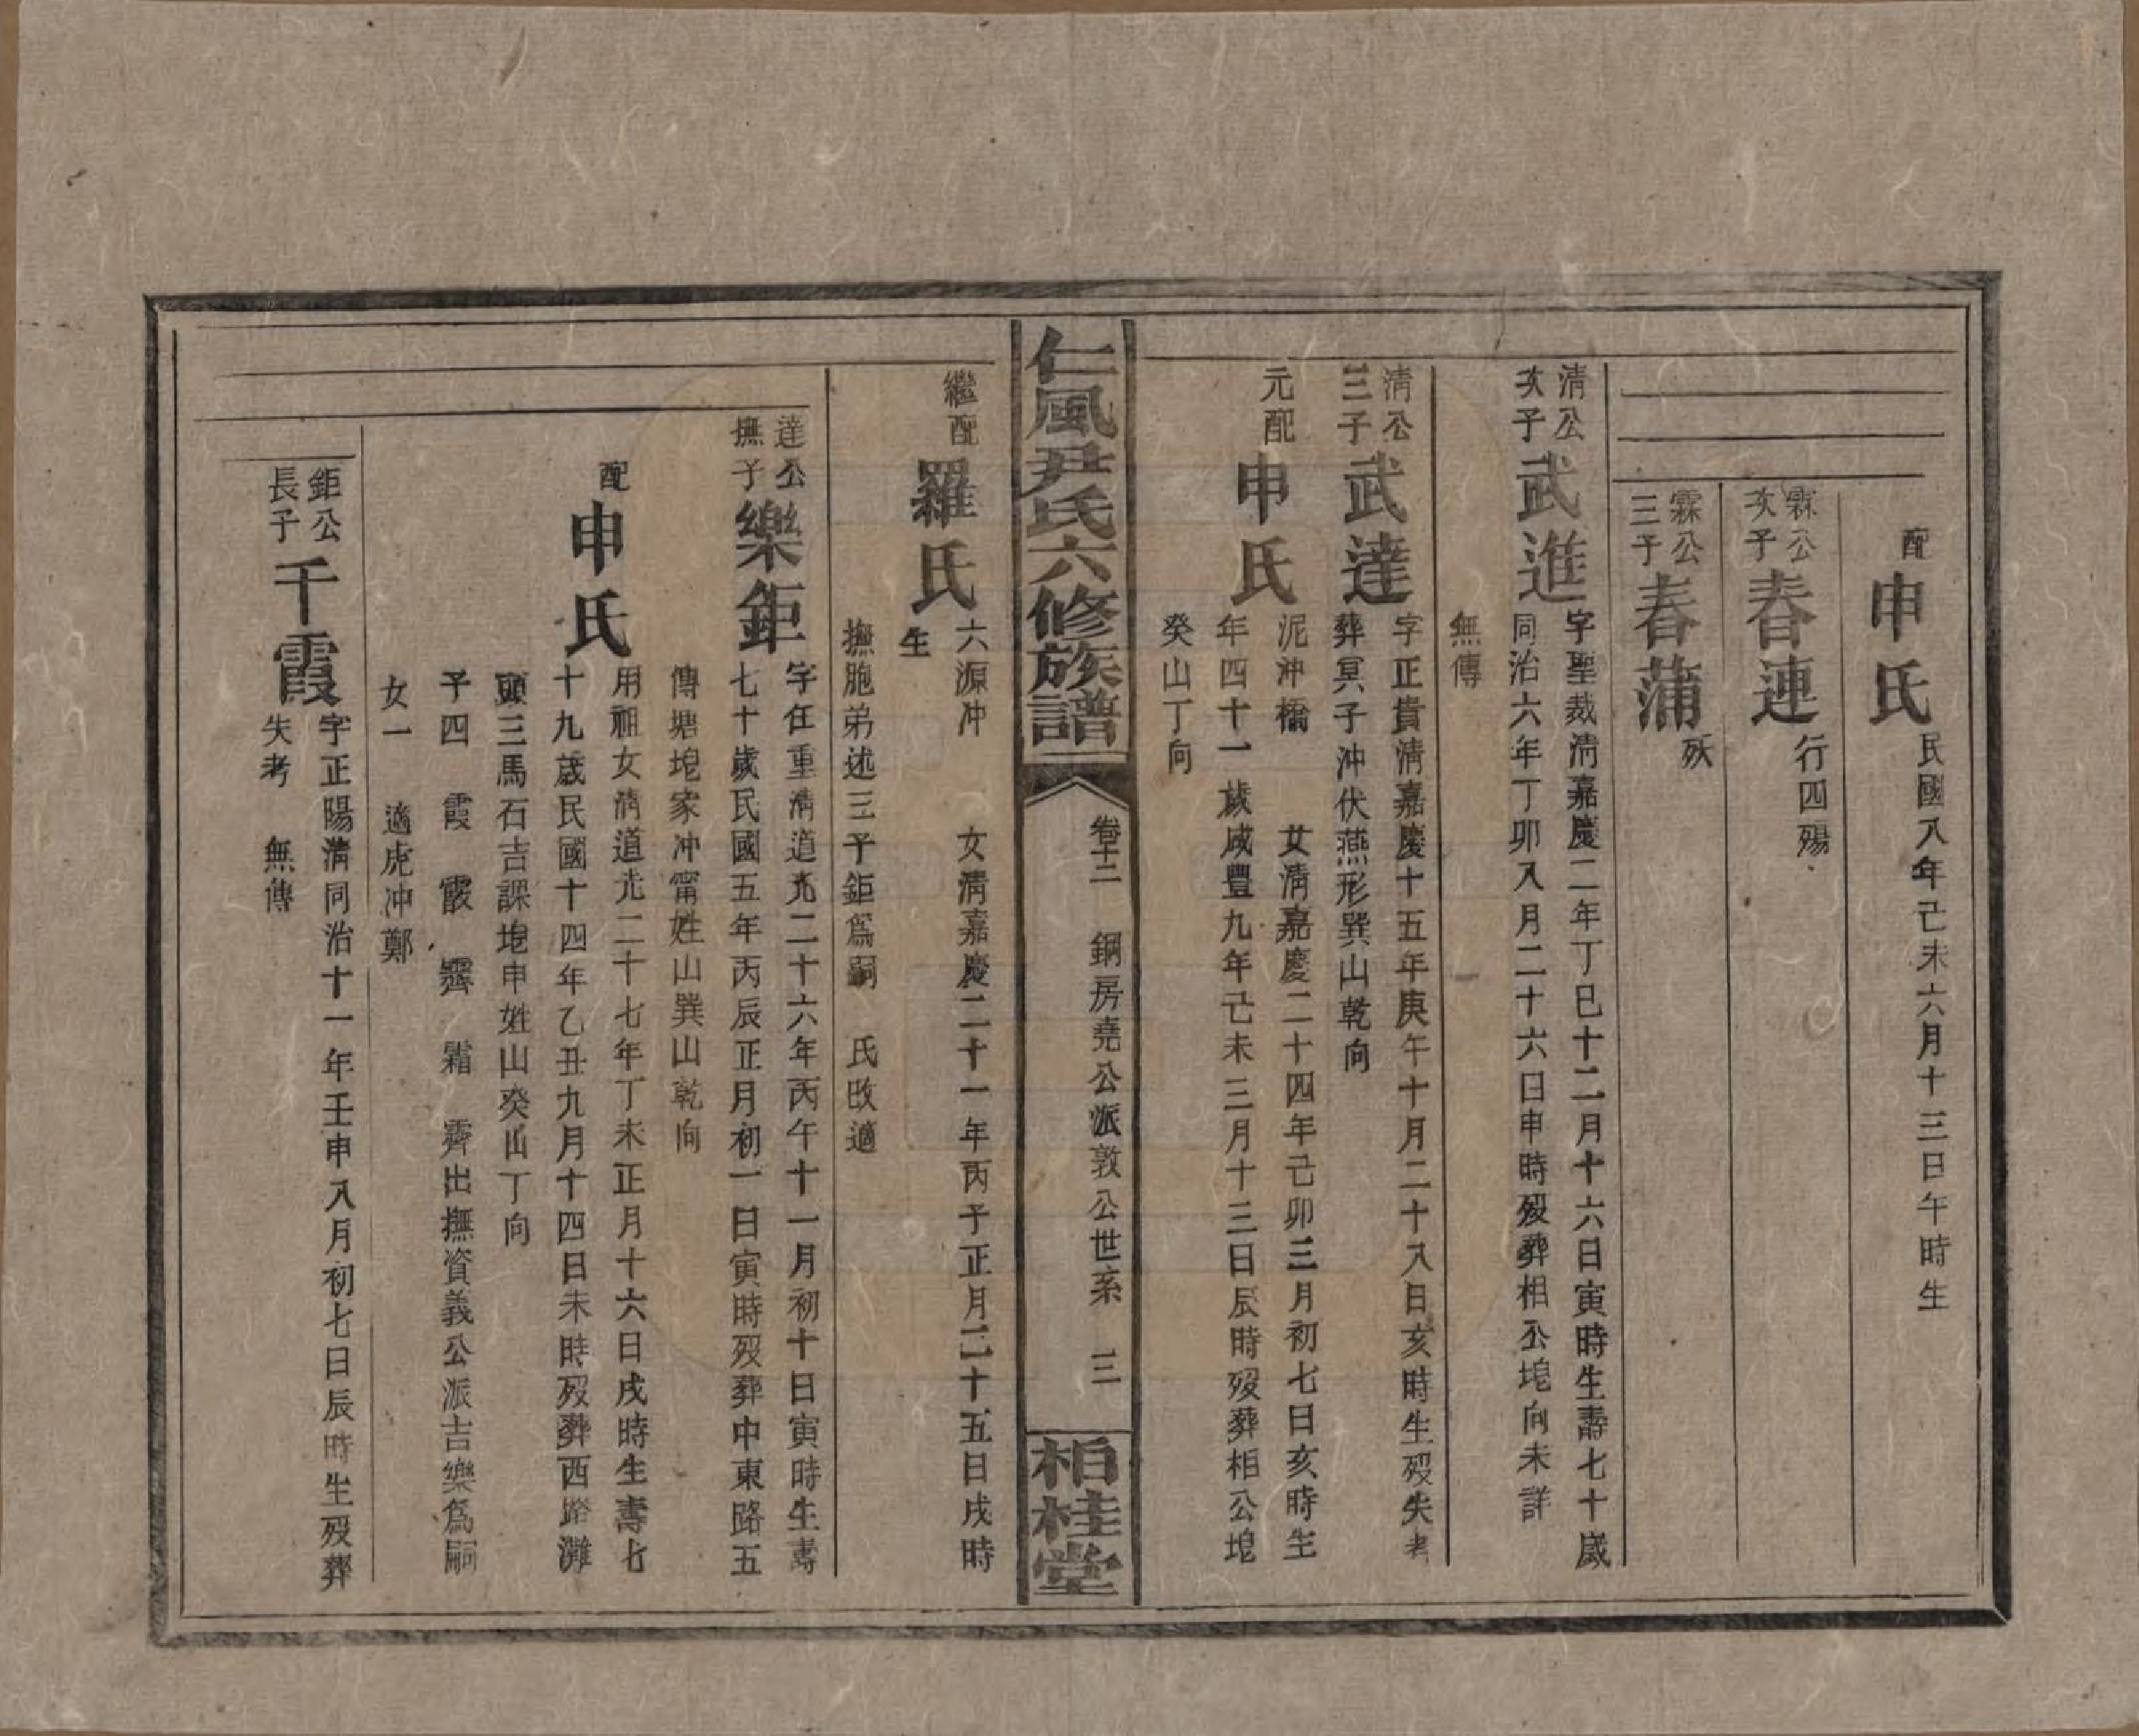 配
申氏
民國八年己未六月十三日午時生
霖公
次子
春連
行四殤
霖公
三子
春蒲
殀
清公
次子
武進
字聖裁清嘉慶二年丁巳十二月十六日寅時生壽七十歲
同治六年丁卯八月二十六日申時歿葬相公坨向未詳
無傳
清公
三子
武達
字正貴清嘉慶十五年庚午十月二十八日亥時生歿失考
葬冥子沖伏燕形巽山乾向
元配
申氏
泥沖橋 女清嘉慶二十四年己卯三月初七日亥時生
年四十一歲咸豐九年己未三月十三日辰時歿葬相公坨
癸山丁向
仁風尹氏六修族譜
卷十二 鋼房堯公派敦公世系 三
柏桂堂
繼配
羅氏
六源冲 女清嘉慶二十一年丙子正月二十五日戌時
生
撫胞弟述三子鉅爲嗣 氏改適
達公
撫子
樂鉅
字任重清道光二十六年丙午十一月初十日寅時生壽
七十歲民國五年丙辰正月初一日寅時歿葬中東路五
傳塘坨家冲甯姓山巽山乾向
配
申氏
用祖女清道光二十七年丁未正月十六日戌時生壽七
十九歲民國十四年乙丑九月十四日未時歿葬西路灘
頭三馬石吉課坨申姓山癸山丁向
子四 霞 霰 霽 霜 霽出撫資義公派吉樂爲嗣
女一 適虎冲鄭
鉅公
長子
千霞
字正陽清同治十一年壬申八月初七日辰時生歿葬
失考 無傳